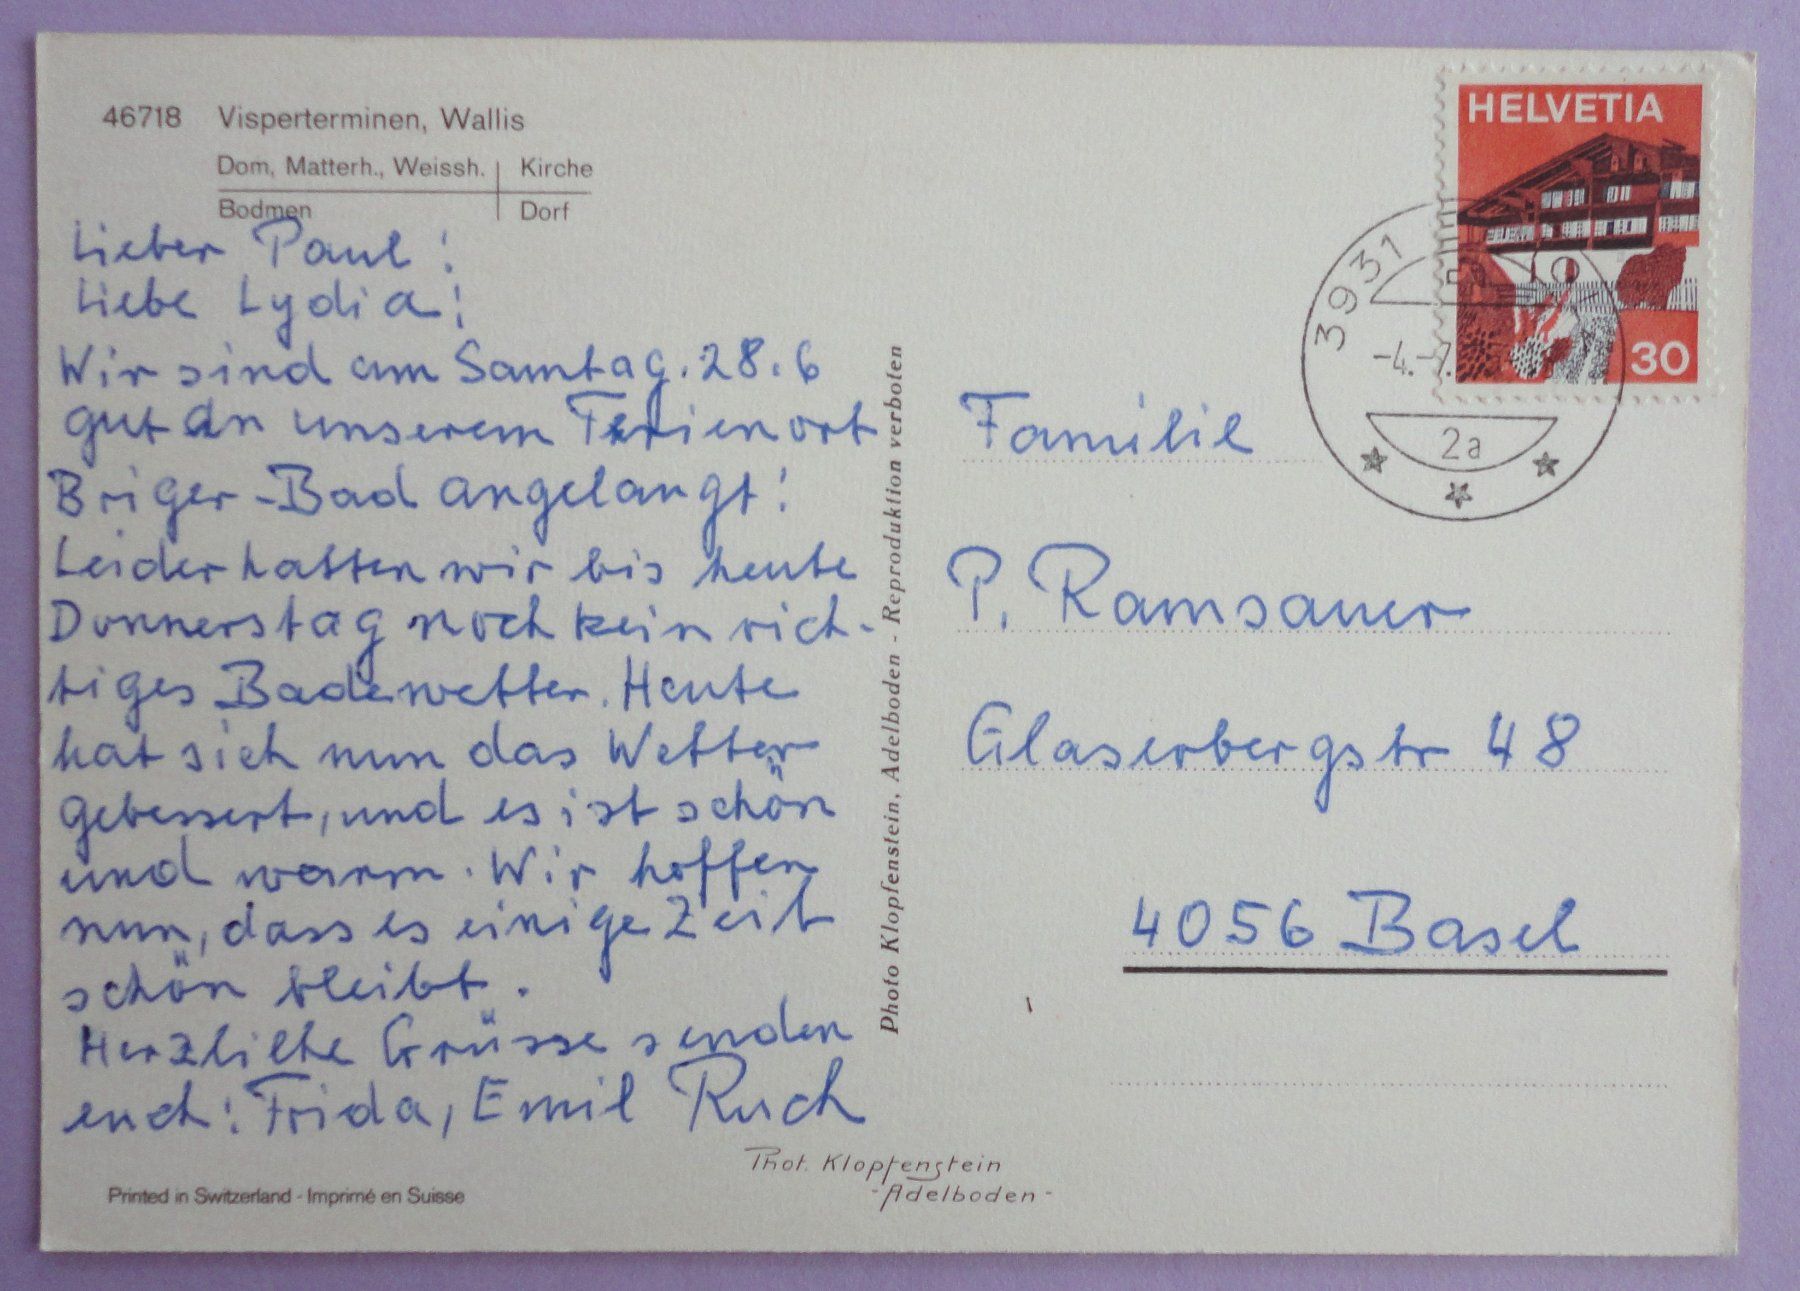 46718 Visperterminen, Wallis
Dom, Matterh., Weissh. Kirche
Bodmen Dorf
Lieber Paul!
Liebe Lydia!
Wir sind am Samtag. 28.6
gut an unserem Ferienort
Briger-Bad angelangt!
Leider hatten wir bis heute
Donnerstag noch kein rich-
tiges Badewetter. Heute
hat sich nun das Wetter
gebessert, und es ist schön
und warm. Wir hoffen
nun, dass es einige Zeit
schön bleibt.
Herzliche Grüsse senden
euch: Frida, Emil Ruch
Printed in Switzerland - Imprimé en Suisse
Photo Klopfenstein, Adelboden - Reproduktion verboten
Phot. Klopfenstein
-Adelboden-
HELVETIA
30
3931
-4.-7.
2a
Familie
P. Ramsauer
Glaserbergstr 48
4056 Basel